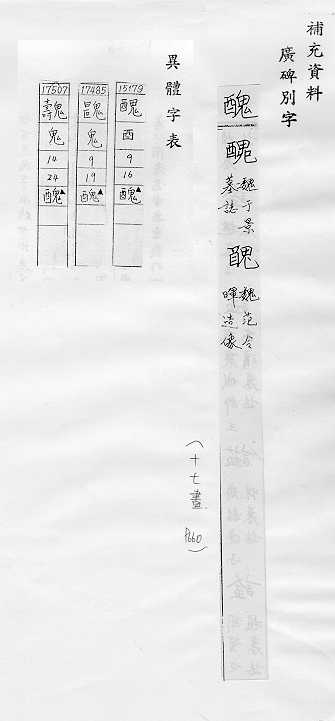 補充資料
廣碑別字
醜
魏于景
墓誌
魏范令
暉造像
(十七畫 P660)
異體字表
15179
醜
酉
9
16
醜▲
17485
鬼
9
19
醜▲
17507
魗
鬼
14
24
醜▲